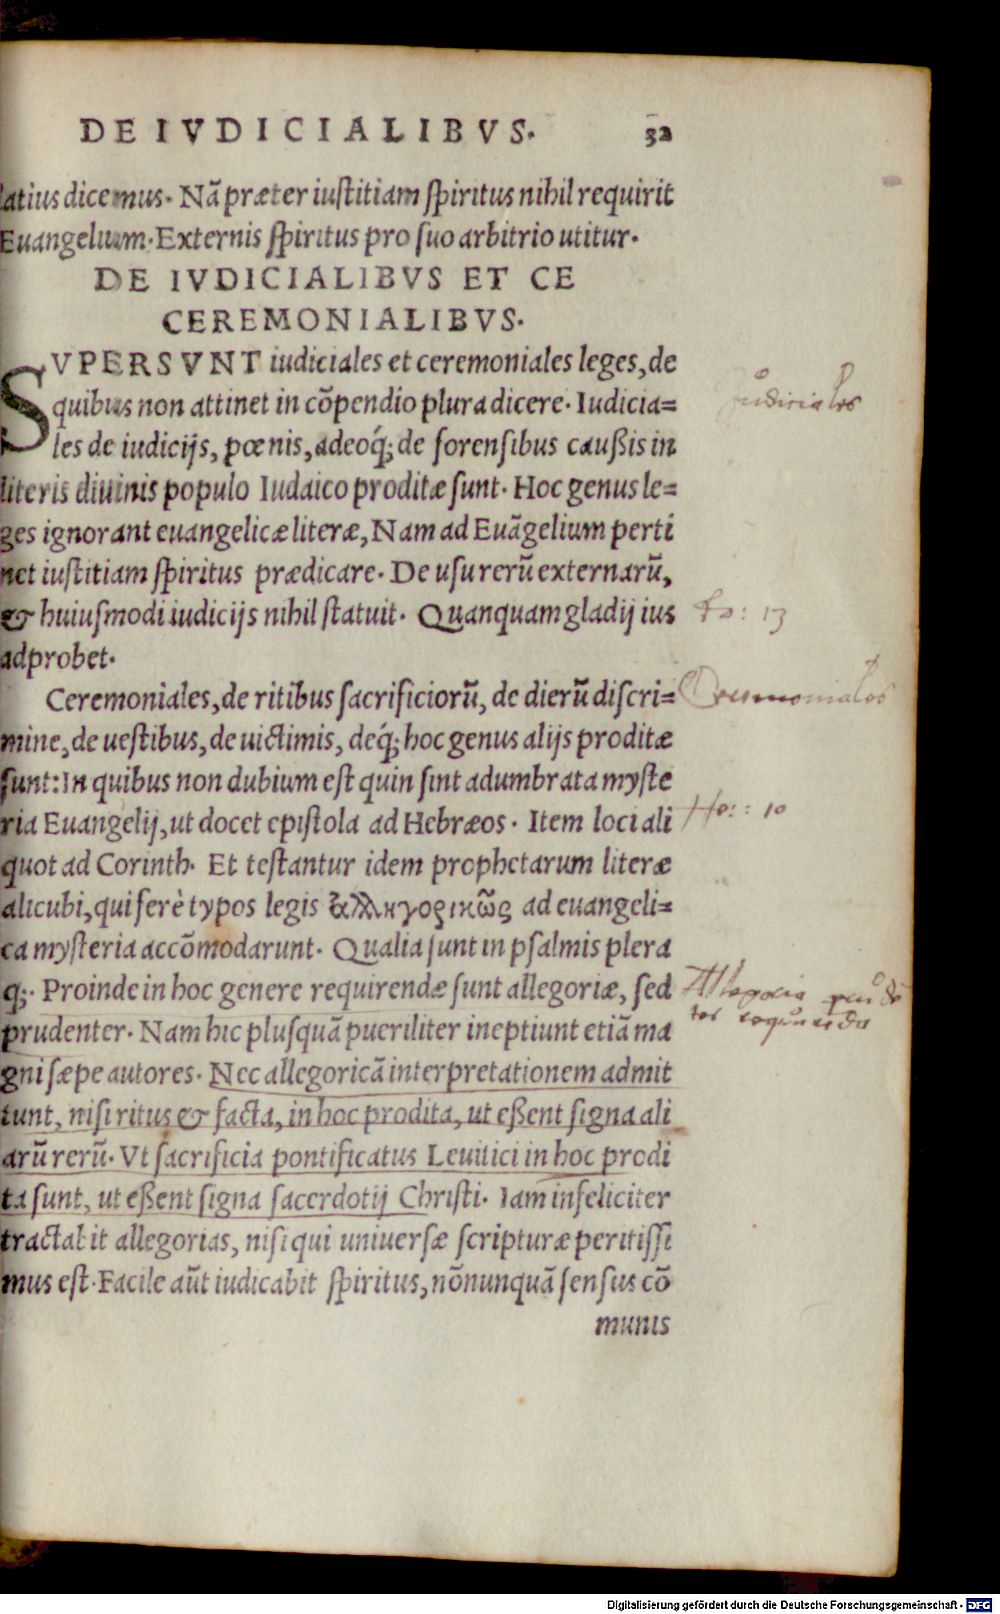 DE IVDICIALIBVS. 32
latius dicemus. Nã præter iustitiam spiritus nihil requirit
Euangelium. Externis spiritus pro suo arbitrio utitur.
DE IVDICIALIBVS ET CE
CEREMONIALIBVS.
SVPERSVNT iudiciales et ceremoniales leges, de
quibus non attinet in cõpendio plura dicere. Iudicia=
les de iudicijs, pœnis, adeoq́; de forensibus caußis in
literis diuinis populo Iudaico proditæ sunt. Hoc genus le=
ges ignorant euangelicæ literæ, Nam ad Euãgelium perti
net iustitiam spiritus prædicare. De usu rerũ externarũ,
& huiusmodi iudicijs nihil statuit. Quanquam gladij ius
adprobet.
Ceremoniales, de ritibus sacrificiorũ, de dierũ discri=
mine, de uestibus, de uictimis, deq́; hoc genus alijs proditæ
sunt: In quibus non dubium est quin sint adumbrata myste
ria Euangelij, ut docet epistola ad Hebræos. Item loci ali
quot ad Corinth. Et testantur idem prophetarum literæ
alicubi, qui ferè typos legis ἀλληγορικῶς ad euangeli=
ca mysteria accõmodarunt. Qualia sunt in psalmis plera
q;. Proinde in hoc genere requirendæ sunt allegoriæ, sed
prudenter. Nam hic plusquã pueriliter ineptiunt etiã ma
gni sæpe autores. Nec allegoricã interpretationem admit
tunt, nisi ritus & facta, in hoc prodita, ut eßent signa ali
arũ rerũ. Vt sacrificia pontificatus Leuitici in hoc prodi
ta sunt, ut eßent signa sacerdotij Christi. Iam infeliciter
tractabit allegorias, nisi qui uniuersæ scripturæ peritissi
mus est. Facile aũt iudicabit spiritus, nõnunquã sensus cõ
munis
Judiciales
Ro: 13
Ceremoniales
He: 10
Allegoria
Digitalisierung gefördert durch die Deutsche Forschungsgemeinschaft - DFG